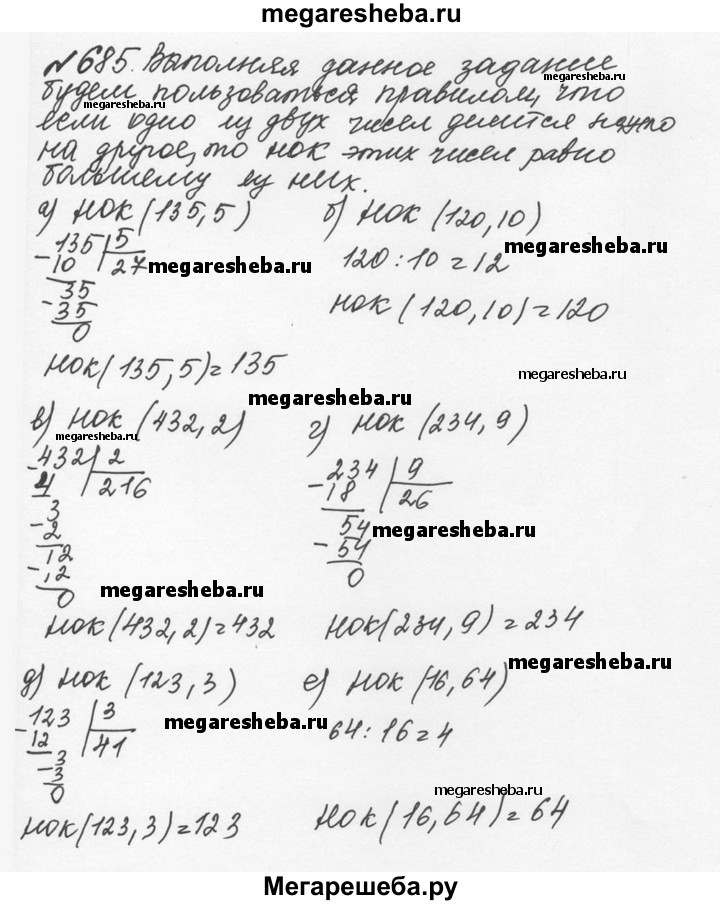 megaresheba.ru
№685. Выполняя данное задание
будем пользоваться правилом, что
megaresheba.ru
megaresheba.ru
если одно из двух чисел делится
на другое, то НОК этих чисел равно
большему из них.
а) НОК (135,5) б) НОК (120,10)
megaresheba.ru
-135 | 5 120 : 10 = 12
10 27 megaresheba.ru
35 НОК (120,10) = 120
-35
0
НОК (135,5) = 135 megaresheba.ru
megaresheba.ru
в) НОК (432,2) г) НОК (234,9)
megaresheba.ru
-432 | 2 -234 | 9
4 216 18 26
3 54
-2 megaresheba.ru
12 -54
-12 0
0 megaresheba.ru
НОК (432,2) = 432 НОК (234,9) = 234
megaresheba.ru
д) НОК (123,3) е) НОК (16,64)
-123 | 3 64 : 16 = 4
12 41 megaresheba.ru
3
-3
0 megaresheba.ru
НОК (123,3) = 123 НОК (16,64) = 64
Мегарешеба.ру